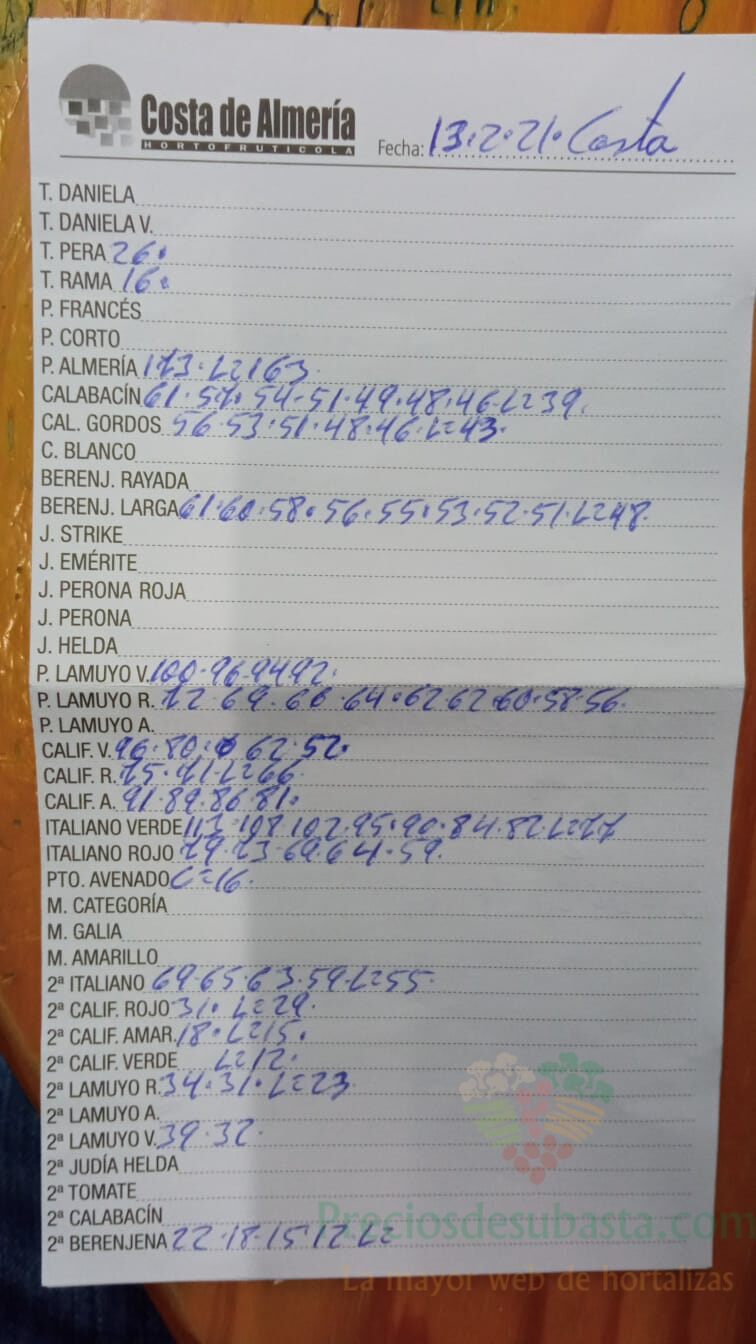 Costa de Almería
HORTOFRUTICOLA
Fecha: 13·2·21· Costa
T. DANIELA
T. DANIELA V.
T. PERA 26·
T. RAMA 16·
P. FRANCÉS
P. CORTO
P. ALMERÍA 173· L=163·
CALABACÍN 61·57·54·51·49·48·46·L=39.
CAL. GORDOS 56·53·51·48·46·L=43·
C. BLANCO
BERENJ. RAYADA
BERENJ. LARGA 61·60·58·56·55·53·52·51·L=48·
J. STRIKE
J. EMÉRITE
J. PERONA ROJA
J. PERONA
J. HELDA
P. LAMUYO V. 100·96·94 92·
P. LAMUYO R. 72·69·66·64·62 62·60·58·56·
P. LAMUYO A.
CALIF. V. 96·80· 62·52·
CALIF. R. 75·71·L=66·
CALIF. A. 91·89·86·81·
ITALIANO VERDE 113·108·102·95·90·84·82·L=77
ITALIANO ROJO 79·73·69·64·59·
PTO. AVENADO C=16·
M. CATEGORÍA
M. GALIA
M. AMARILLO
2ª ITALIANO 69·65·63·59·L=55·
2ª CALIF. ROJO 31· L=29·
2ª CALIF. AMAR. 18· L=15·
2ª CALIF. VERDE L=12·
2ª LAMUYO R. 34·31·L=23
2ª LAMUYO A.
2ª LAMUYO V. 39·32·
2ª JUDÍA HELDA
2ª TOMATE
2ª CALABACÍN
2ª BERENJENA 22·18·15·12·L=
Preciosdesubasta.com
La mayor web de hortalizas